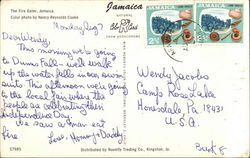 The Fire Eater, Jamaica.
Color photo by Nancy Reynolds Cooke
Jamaica
NATURAL
COLOR REPRODUCTIONS
JAMAICA
JAMAICA
Monday Aug 7
Dear Wendy,
This morning we're going
to Dunns Falls - we'll walk
up the water falls in our swim
suits. This afternoon we're going
to the local fair where the
people are celebrating their
Independence Day.
We saw a man eat
fire
Love, Mommy & Daddy
Wendy Jacobs
Camp Rose Lake
Honesdale Pa 18431
U.S.A.
Bunk 8
Distributed by Novelty Trading Co., Kingston, Ja.